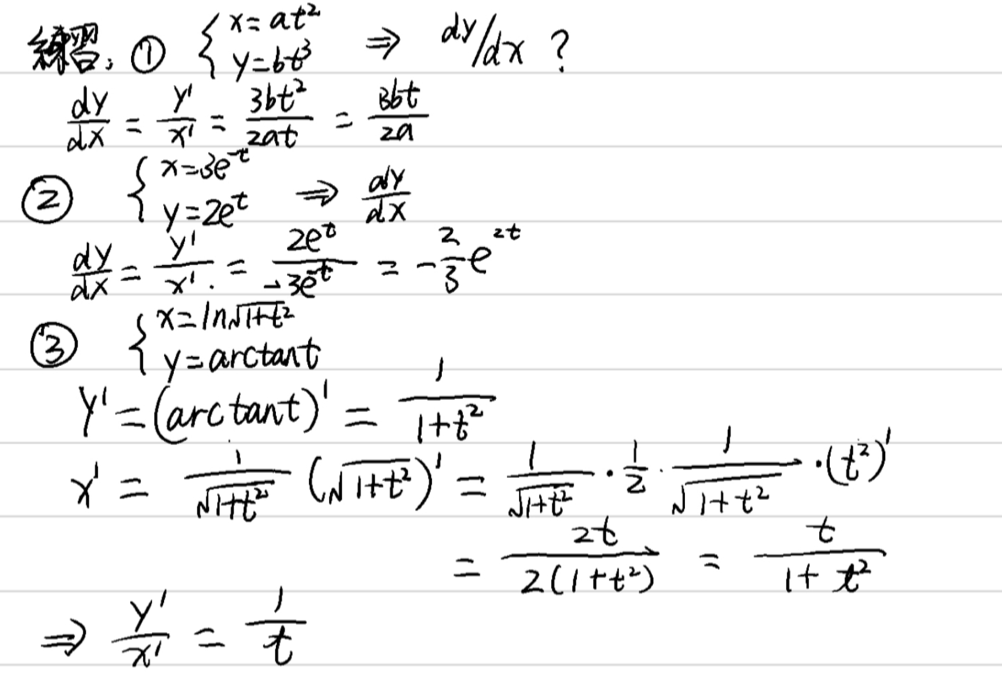 練習: ① { x=at² y=bt³ ⇒ dy/dx ?
dy/dx = y'/x' = 3bt²/2at = 3bt/2a
② { x=3e^-t y=2e^t ⇒ dy/dx
dy/dx = y'/x'. = 2e^t/-3e^-t = -2/3 e^2t
③ { x=ln√1+t² y=arctant
y'=(arctant)' = 1/1+t²
x' = 1/√1+t² (√1+t²)' = 1/√1+t² · 1/2 · 1/√1+t² · (t²)'
= 2t/2(1+t²) = t/1+t²
⇒ y'/x' = 1/t